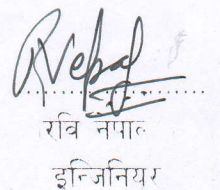 RNepal
रवि नेपाल
इन्जिनियर